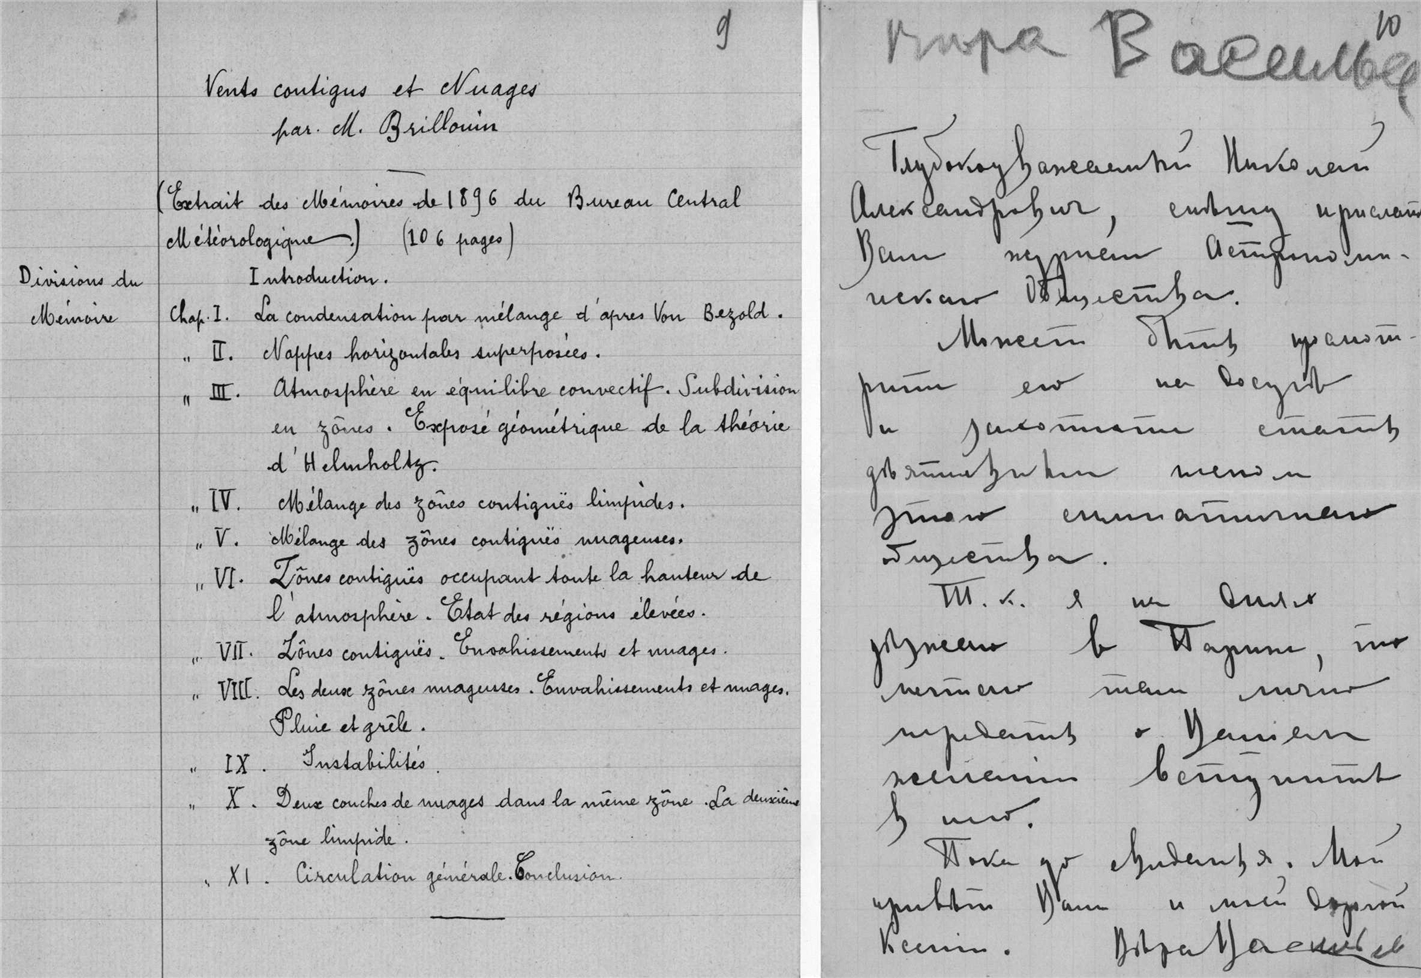 9
Vents contigus et Nuages
par. M. Brillouin
(Extrait des Mémoires de 1896 du Bureau Central
Météorologique) (106 pages)
Divisions du
Mémoire
Introduction.
Chap. I. La condensation par mélange d'apres Von Bezold.
„ II. Nappes horizontales superposées.
„ III. Atmosphère en équilibre convectif. Subdivision
en zônes. Exposé géométrique de la théorie
d'Helmholtz.
„ IV. Mélange des zônes contiguës limpides.
„ V. Mélange des zônes contiguës nuageuses.
„ VI. Zônes contiguës occupant toute la hauteur de
l'atmosphère. Etat des régions élevées.
„ VII. Zônes contiguës. Envahissements et nuages.
„ VIII. Les deux zônes nuageuses. Envahissements et nuages.
Pluie et grêle.
„ IX. Instabilités.
„ X. Deux couches de nuages dans la même zône. La deuxième
zône limpide.
„ XI. Circulation générale. Conclusion.
10
Глубокоуважаемый Николай
Александровичъ, спѣшу
Вам журнал Астрономи-
ческаго Общества.
Может быть просмот-
рите его на досугѣ
и захотите стать
дѣйствит. членом
этого симпатичнаго
общества.
Т. к. я на днях
уѣзжаю в Париж, то
могу там лично
передать о Вашем
желании вступить
въ него.
Пока до свиданья. Мой
привѣт Вам и моей дорогой
Ксении. Вѣра